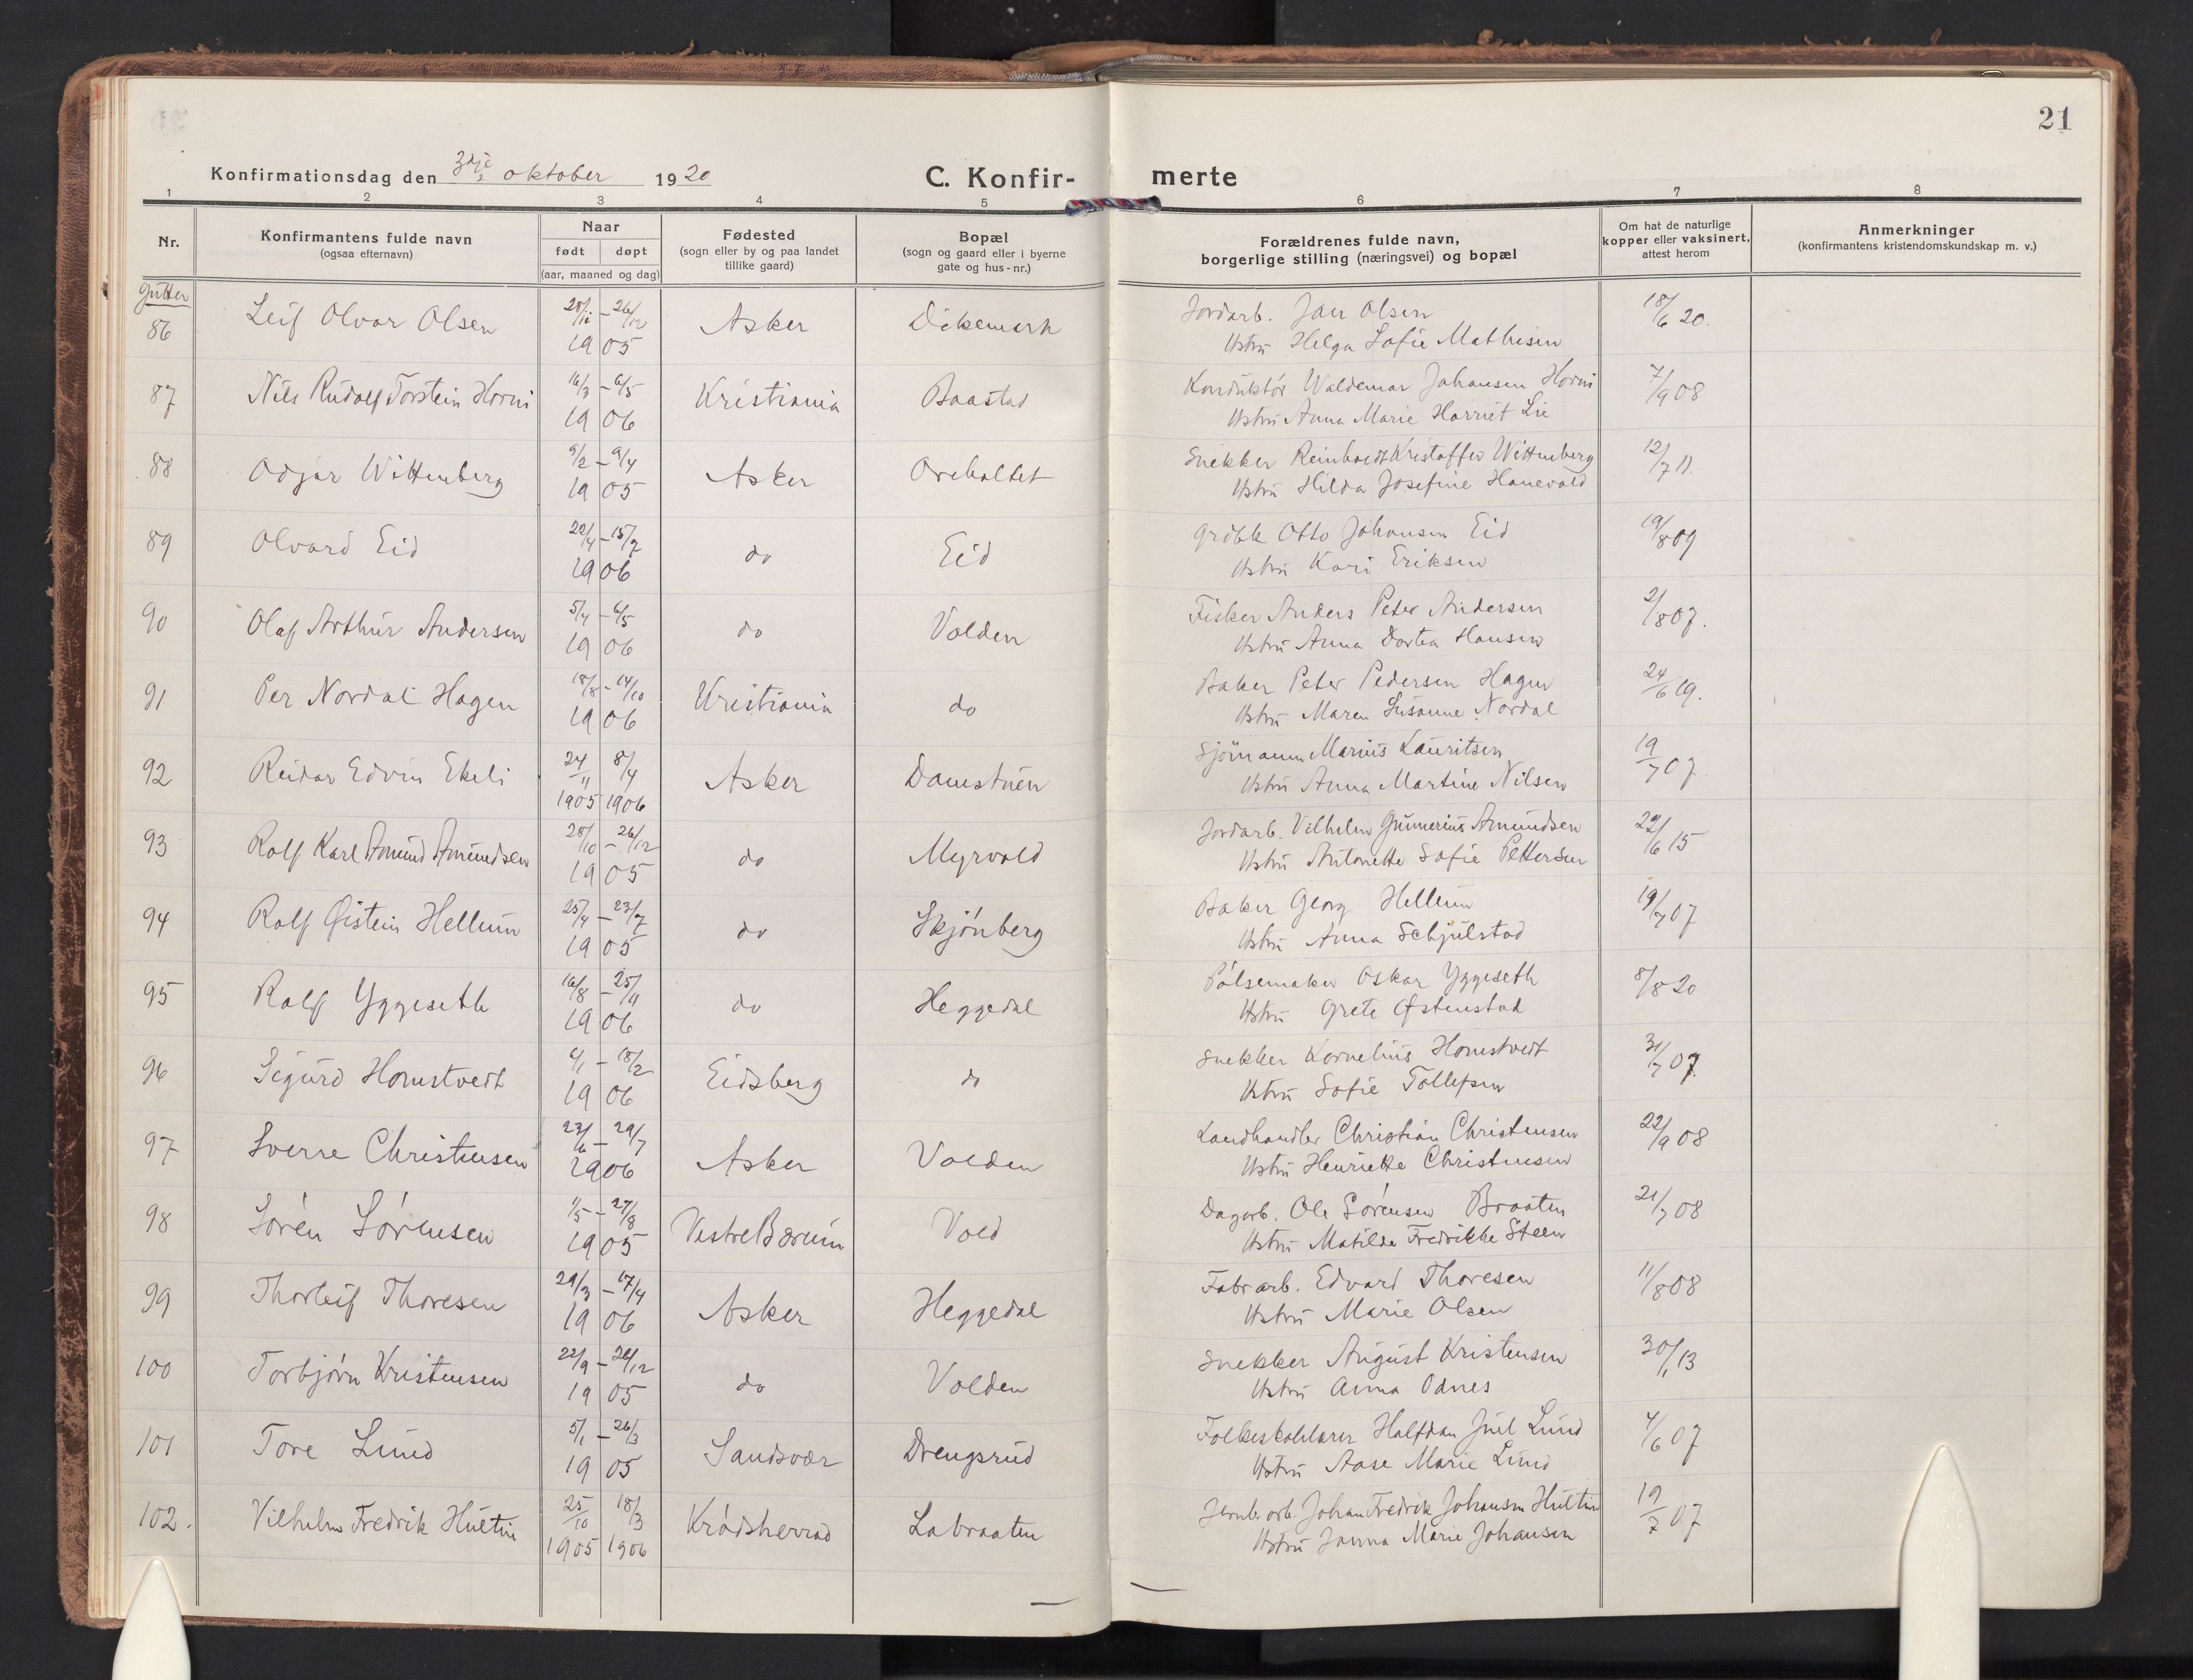 21
Konfirmationsdag den 3dje oktober 1920
C. Konfir-merte
1 2 3 4 5 6 7 8
Nr.
Konfirmantens fulde navn
(ogsaa efternavn)
Naar
født døpt
(aar, maaned og dag)
Fødested
(sogn eller by og paa landet
tillike gaard)
Bopæl
(sogn og gaard eller i byerne
gate og hus-nr.)
Forældrenes fulde navn,
borgerlige stilling (næringsvei) og bopæl
Om hat de naturlige
kopper eller vaksinert,
attest herom
Anmerkninger
(konfirmantens kristendomskundskap m. v.)
Gutter
86 Leif Olvar Olsen 26/12 1905 Asker Dikemark Jordarb. Jan Olsen 18/6 20.
Ustru Helga Sofie Mathisen
87 Nils Rudolf Torstein Horni 16/3 – 6/5 1906 Kristiania Baastad Konduktór Waldemar Johansen Horni 7/9 08
Ustru Anna Marie Harriet Lie
88 Odgar Wittenberg 9/2 – 9/4 1905 Asker Oreholtet Snekker Reinholdt Kristoffer Wittenberg 12/7 11.
Ustru Hilda Josefine Hanevold
89 Olvard Eid 22/4 – 15/7 1906 do Eid Grdbk Otto Johansen Eid 19/8 09
Ustru Kari Eriksen
90 Olaf Arthur Andersen 5/4 – 6/5 1906 do Volden Fisker Anders Peter Andersen 2/8 07.
Ustru Anna Dortea Hansen
91 Per Nordal Hagen 18/8 – 14/10 1906 Kristiania do Baker Peter Pedersen Hagen 24/6 19.
Ustru Maren Susanne Nordal
92 Reidar Edvin Ekeli 24/11 1905 8/4 1906 Asker Damstuen Sjömann Marius Lauritsen 19/7 07
Ustru Anna Martine Nilsen
93 Rolf Karl Amund Amundsen 28/10 – 26/12 1905 do Myrvold Jordarb. Vilhelm Gunnerius Amundsen 22/6 15
Ustru Antonette Sofie Pettersen
94 Rolf Øistein Hellum 25/4 – 23/7 1905 do Skjónberg Baker Georg Hellum 19/7 07
Ustru Anna Schjulstad
95 Rolf Yggeseth 16/8 – 25/11 1906 do Heggedal Pólsemaker Oskar Yggeseth 8/8 20
Ustru Grete Østenstad
96 Sigurd Homstvedt 6/1 – 18/2 1906 Eidsberg do Snekker Kornelius Homstvedt 31/7 07.
Ustru Sofie Tollefsen
97 Sverre Christensen 23/6 – 29/7 1906 Asker Volden Landhandler Christian Christensen 22/9 08
Ustru Henriette Christensen
98 Sórén Sórensen 1/5 – 27/8 1905 Vestre Bærum Vold Dagarb. Ole Sórensen Braaten 21/7 08
Ustru Matilde Fredrikke Steen
99 Thorleif Thoresen 29/3 – 17/4 1906 Asker Heggedal Fabrarb. Edvard Thoresen 11/8 08
Ustru Marie Olsen
100 Torbjórn Kristensen 22/9 – 26/12 1905 do Volden Snekker August Kristensen 30/1 13
Ustru Anna Odnes
101 Tore Lund 5/1 – 26/3 1905 Sandsvær Drengsrud Folkeskolelærer Halfdan Juel Lund 4/6 07
Ustru Aase Marie Lund
102. Vilhelm Fredrik Hultin 25/10 1905 18/3 1906 Kródsherrad Labraaten Jernb. arb. Johan Fredrik Johansen Hultin 19/7 07
Ustru Janna Marie Johansen